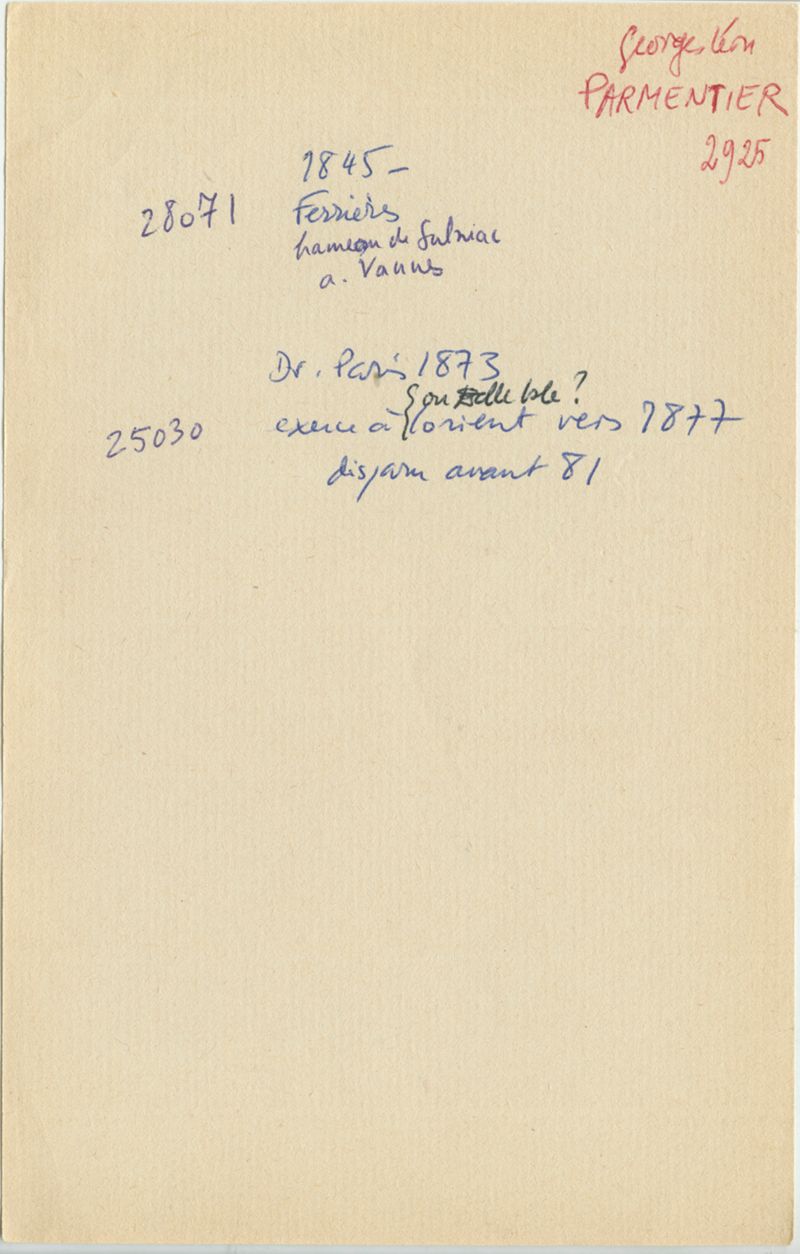 Georges Léon
PARMENTIER
2925
1845 -
28071 Ferrières
hameau de Sulniac
a. Vannes
Dr. Paris 1873
ou Belle Isle ?
25030 exerce à Lorient vers 1877
disparu avant 81